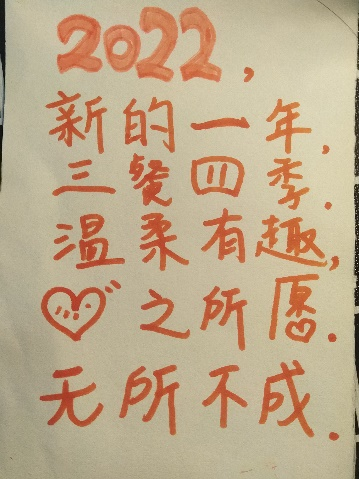 2022,
新的一年,
三餐四季.
温柔有趣,
♡之所愿.
无所不成.